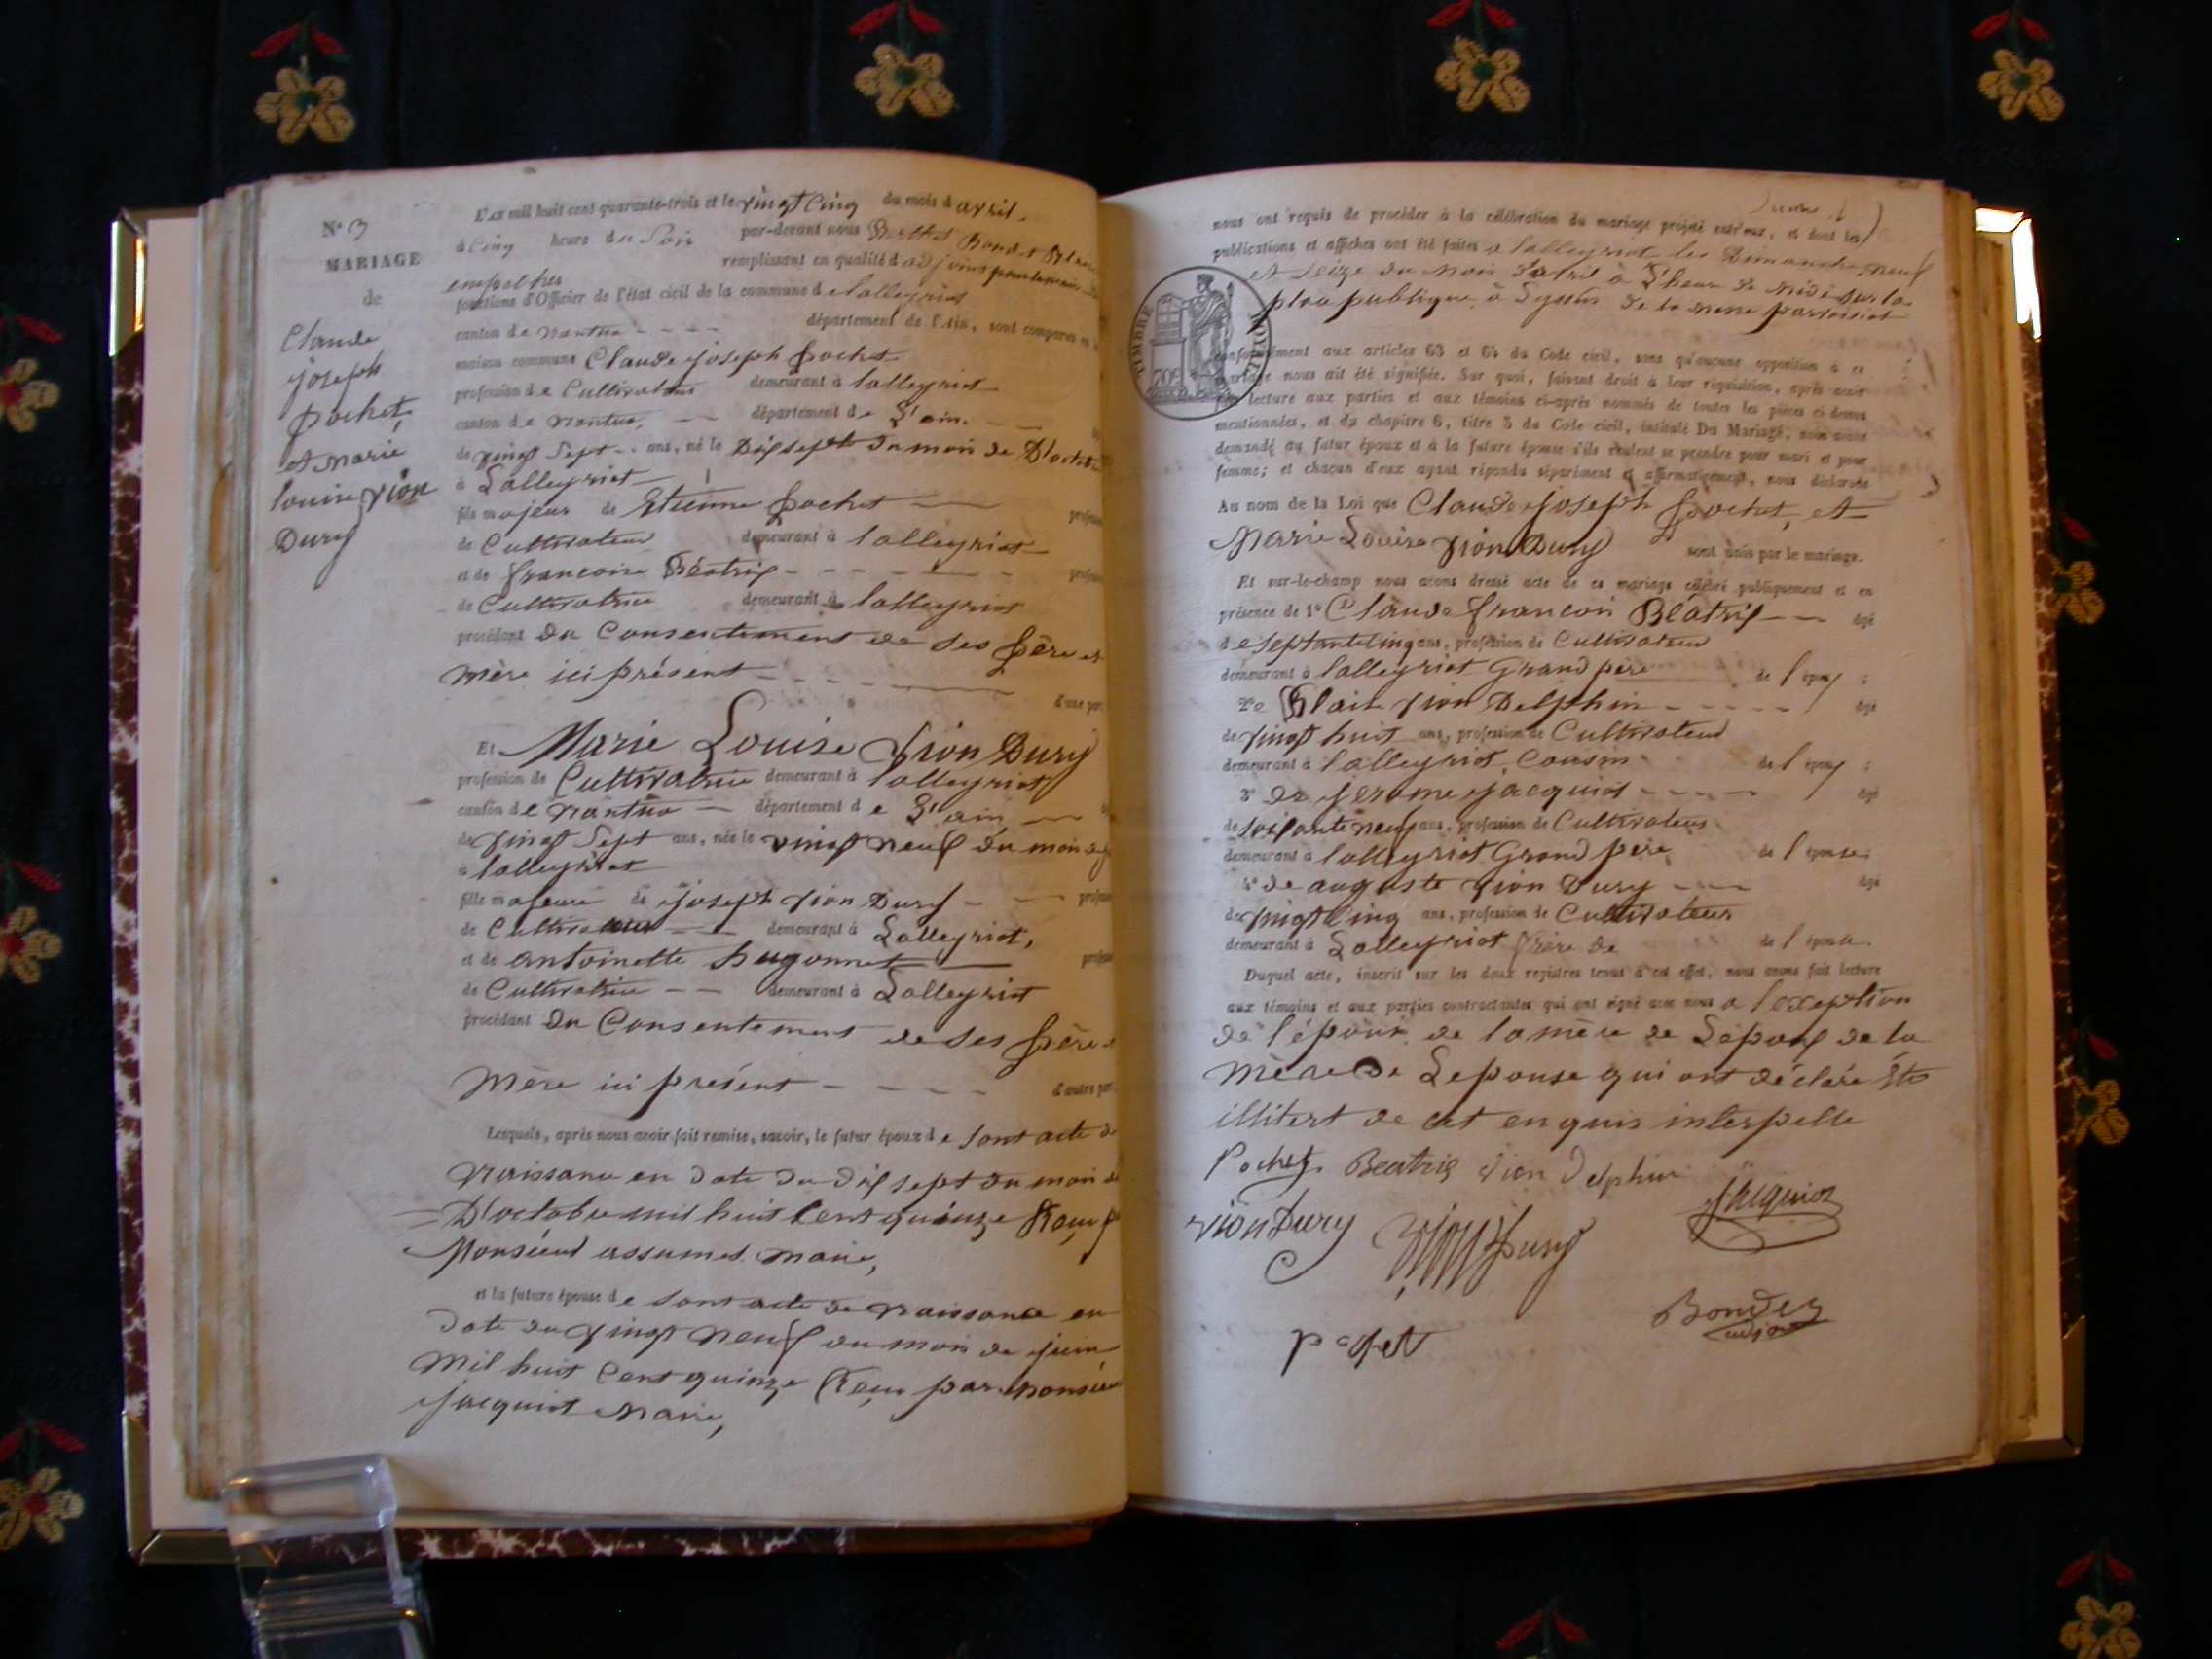 N° 3
MARIAGE
de
Claude
joseph
pochet,
et marie
louise vion
Dury
L'an mil huit cent quarante-trois et le vingt cinq du mois d avril
à cinq heure du Soir par-devant nous Berthet Bondet
remplissant en qualité d adjoint pour le maire
fonctions d'Officier de l'état civil de la commune de lalleyriat
canton de nantua département de l'Ain, sont comparus en la
maison commune Claude joseph pochet
profession de Cultivateur demeurant à lalleyriat
canton de nantua, département de l'ain.
de vingt Sept ans, né le Dix sept du mois de D'octobre
à Lalleyriat
fils majeur de Etienne pochet profession
de Cultivateur demeurant à lalleyriat
et de francoise Béatrix profession
de Cultivatrice demeurant à lalleyriat
procédant du Consentement de ses père et
mère ici présent
d'une part
Et Marie Louise Vion Dury
profession de Cultivatrice demeurant à lalleyriat
canton de nantua département de l'ain
de vingt Sept ans, née le vingt neuf du mois de
à lalleyriat
fille majeure de joseph vion Dury profession
de Cultivateur demeurant à Lalleyriat,
et de antoinette hugonnet profession
de Cultivatrice demeurant à Lalleyriat
procédant du Consentement de ses père et
Mère ici présent d'autre part
Lesquels, après nous avoir fait remise, savoir, le futur époux de sont acte de
naissance en date du dix sept du mois de
D'octobre mil huit Cent quinze Reçu p
Monsieur assumet maire,
et la future épouse de sont acte de naissance en
Date du vingt neuf du mois de juin
Mil huit Cent quinze Reçu par Monsieur
jacquiot Maire,
nous ont requis de procéder à la célébration du mariage projeté entr'eux, et dont les
publications et affiches ont été faites a lalleyriat les Dimanche neuf
et seize du mois d'avril à l'heure de midi sur la
place publique à de la messe paroissial
TIMBRE ROYAL
70c
conformément aux articles 63 et 64 du Code civil, sans qu'aucune opposition à ce
mariage nous ait été signifiée. Sur quoi, faisant droit à leur réquisition, après avoir
fait lecture aux parties et aux témoins ci-après nommés de toutes les pièces ci-dessus
mentionnées, et du chapitre 6, titre 5 du Code civil, intitulé Du Mariage, nous avons
demandé au futur époux et à la future épouse s'ils veulent se prendre pour mari et pour
femme; et chacun d'eux ayant répondu séparément et affirmativement, nous déclarons
Au nom de la Loi que Claude joseph pochet, et
Marie Louise vion Dury sont unis par le mariage.
Et sur-le-champ nous avons dressé acte de ce mariage célébré publiquement et en
présence de 1° Claude francois Béatrix âgé
de septante Cinq ans, profession de Cultivateur
demeurant à lalleyriat Grand père de l'époux ;
2° Blait vion Delphin âgé
de vingt huit ans, profession de Cultivateur
demeurant à lalleyriat, Cousin de l'époux ;
3° de jerome jacquiot âgé
de soixante neuf ans, profession de Cultivateur
demeurant à lalleyriat Grand père de l'épouse;
4° de auguste vion Dury âgé
de vingt cinq ans, profession de Cultivateur
demeurant à Lalleyriat frère de de l'épouse
Duquel acte, inscrit sur les deux registres tenus à cet effet, nous avons fait lecture
aux témoins et aux parties contractantes qui ont signé avec nous a l'exeption
de l'époux de la mère de Lépoux de la
Mère de Lepouse qui ont déclaré être
illitert de cet enquis interpellé
Pochet Beatrix vion Delphin jacquiot
vion Dury Vion Dury
pochet Bondet
adjoint